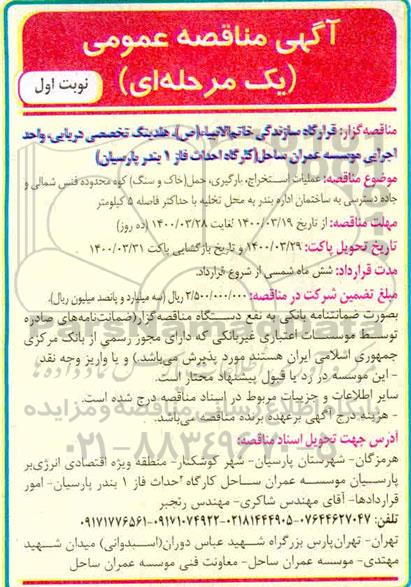 آگهی مناقصه عمومی
(یک مرحله‌ای)
نوبت اول
مناقصه‌گزار: قرارگاه سازندگی خاتم‌الانبیاء(ص)، هلدینگ تخصصی دریایی، واحد
اجرایی موسسه عمران ساحل(کارگاه احداث فاز ۱ بندر پارسیان)
موضوع مناقصه: عملیات استخراج، بارگیری، حمل(خاک و سنگ) کوه محدوده فنس شمالی و
جاده دسترسی به ساختمان اداره بندر به محل تخلیه با حداکثر فاصله ۵ کیلومتر
مهلت مناقصه: از تاریخ ۱۴۰۰/۰۳/۱۹ لغایت ۱۴۰۰/۰۳/۲۸ (ده روز)
تاریخ تحویل پاکت: ۱۴۰۰/۰۳/۲۹ و تاریخ بازگشایی پاکت ۱۴۰۰/۰۳/۳۱
مدت قرارداد: شش ماه شمسی از شروع قرارداد.
مبلغ تضمین شرکت در مناقصه: ۳/۵۰۰/۰۰۰/۰۰۰ ریال (سه میلیارد و پانصد میلیون ریال)،
بصورت ضمانتنامه بانکی به نفع دستگاه مناقصه گزار(ضمانت‌نامه‌های صادره
توسط موسسات اعتباری غیربانکی که دارای مجوز رسمی از بانک مرکزی
جمهوری اسلامی ایران هستند مورد پذیرش می‌باشد.) و یا واریز وجه نقد.
- این موسسه در رد یا قبول پیشنهاد مختار است.
- سایر اطلاعات و جزییات مربوط در اسناد مناقصه درج شده است.
- هزینه درج آگهی برعهده برنده مناقصه می‌باشد.
آدرس جهت تحویل اسناد مناقصه:
هرمزگان- شهرستان پارسیان- شهر کوشکنار- منطقه ویژه اقتصادی انرژی‌بر
پارسیان موسسه عمران ساحل کارگاه احداث فاز ۱ بندر پارسیان- امور
قراردادها- آقای مهندس شاکری- مهندس رنجبر
تلفن: ۰۷۶۴۴۶۲۷۰۴۷-۰۲۱۸۱۴۴۴۹۰۵-۰۹۱۷۱۰۷۴۹۲۲-۰۹۱۷۱۷۷۶۵۶۱
تهران- تهران‌پارس بزرگراه شهید عباس دوران(استخر) میدان شهید
مهتدی- موسسه عمران ساحل- معاونت فنی موسسه عمران ساحل
ParsNamadData
۰۲۱-۸۸۳۴۹۶۷۰-۵